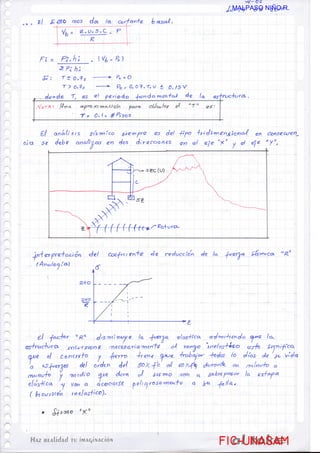 MALPASO NIÑO R.
... El sismo nos da la cortante basal.
Vb = Z.U.S.C . P
R
Fi = Pi.hi . (Vb - Ft)
Σ Pi hi
Si: T ≤ 0.7, → Ft = 0
T > 0.7, → Ft = 0.07.T.V ≤ 0.15V
donde T, es el periodo fundamental de la estructura.
Nota: Una aproximación para calcular el "T" es:
T = 0.1 × #Pisos
El análisis sísmico siempre es del tipo tridimensional en consecuen_
cia se debe analizar en dos direcciones en el eje "x" y el eje "y".
ZEC(U)
C
SZ
Rotura
Interpretación del coeficiente de reducción de la fuerza sísmica "R"
(Analogía)
El factor "R" disminuye la fuerza elástica admitiendo que la
estructura interviene necesariamente al rango inelástico esto significa
que el concreto y fierro tiene que trabajar todo lo días de su vida
a esfuerzos del orden del
minuto y medio que dura el sismo van a sobrepasar la etapa
elástica y van a acercarse peligrosamente a su falla.
(Incursión inelástica).
• Sismo "x"
Haz realidad tu imaginación
FIC-UNASAM